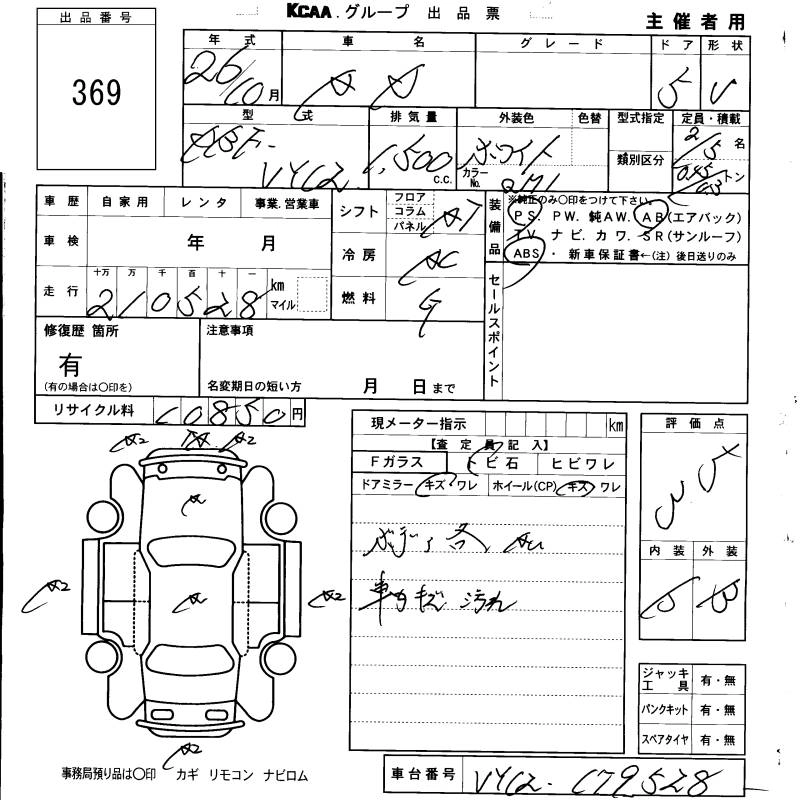 KCAA グループ 出品票
主催者用
出品番号
369
年式 車名 グレード ドア 形状
26/10月 AD 5 V
型式 排気量 外装色 色替 型式指定 定員・積載
DBF-VY12 1,500 c.c. ホワイト カラーNo. QM1 類別区分 2/5名
トン
車歴 自家用 レンタ 事業.営業車
車検 年 月
走行 十万 万 千 百 十 一 km マイル
210528
シフト フロア コラム パネル AT
冷房 AC
燃料 G
装備品
※純正のみ〇印をつけて下さい。
PS. PW. 純AW. AB(エアバック)
TV. ナビ. カワ. SR(サンルーフ)
ABS・ 新車保証書←(注) 後日送りのみ
セールスポイント
修復歴 箇所
有
(有の場合は〇印を)
注意事項
名変期日の短い方 月 日まで
リサイクル料 10850円
現メーター指示 km
【査定員記入】
Fガラス トビ石 ヒビワレ
ドアミラー キズ ワレ ホイール(CP) キズ ワレ
ボディ各
車内キズ 汚れ
評価点
内装 外装
ジャッキ工具 有・無
パンクキット 有・無
スペアタイヤ 有・無
A2 A2
A
A2 A A2
A2
事務局預り品は〇印 カギ リモコン ナビロム
車台番号 VY12-179528